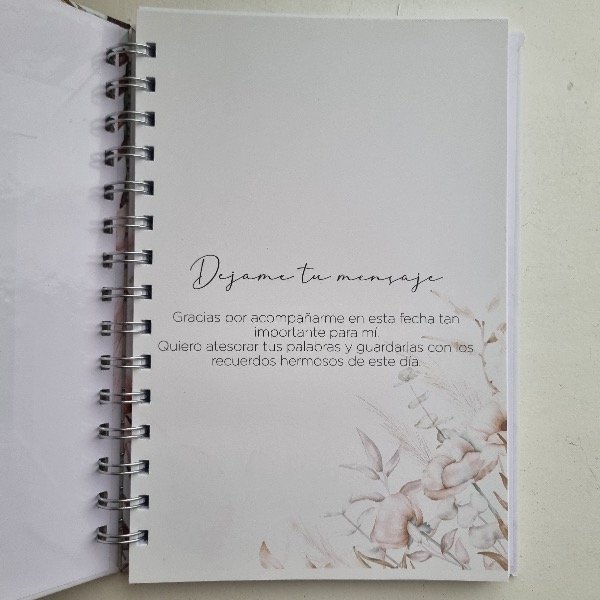 Dejame tu mensaje
Gracias por acompañarme en esta fecha tan
importante para mí.
Quiero atesorar tus palabras y guardarlas con los
recuerdos hermosos de este día.